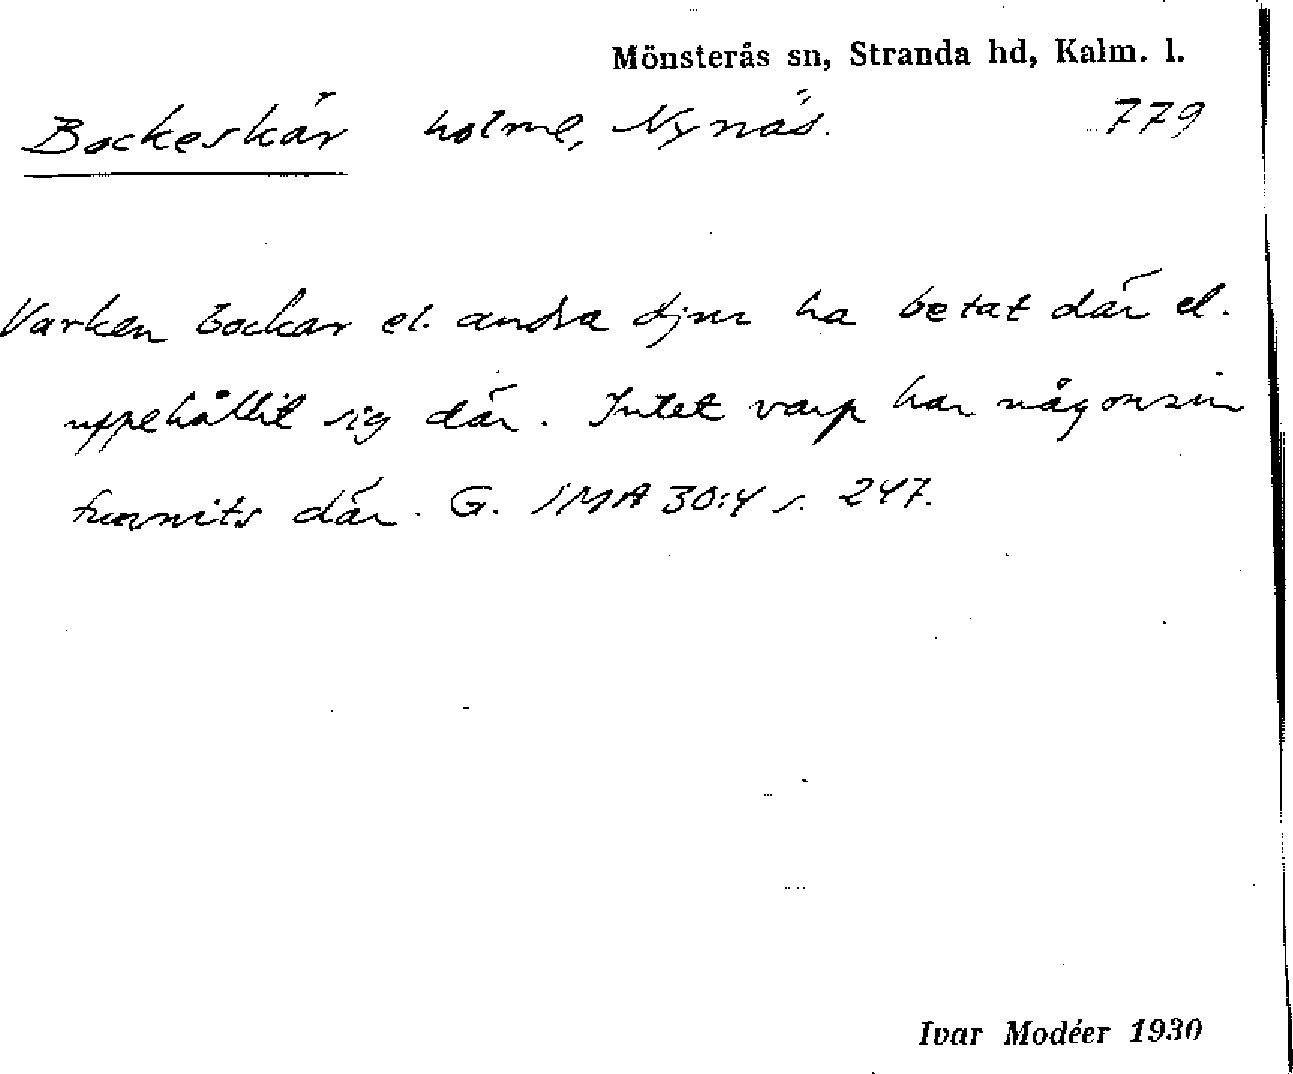 Mönsterås sn, Stranda hd, Kalm. l.
Bockeskär holme, Nynäs. 779
Varken bockar el. andra djur ha betat där el.
uppehållit sig där. Intet varp har någonsin
funnits där. G. IMA 30:4 s. 247.
Ivar Modéer 1930